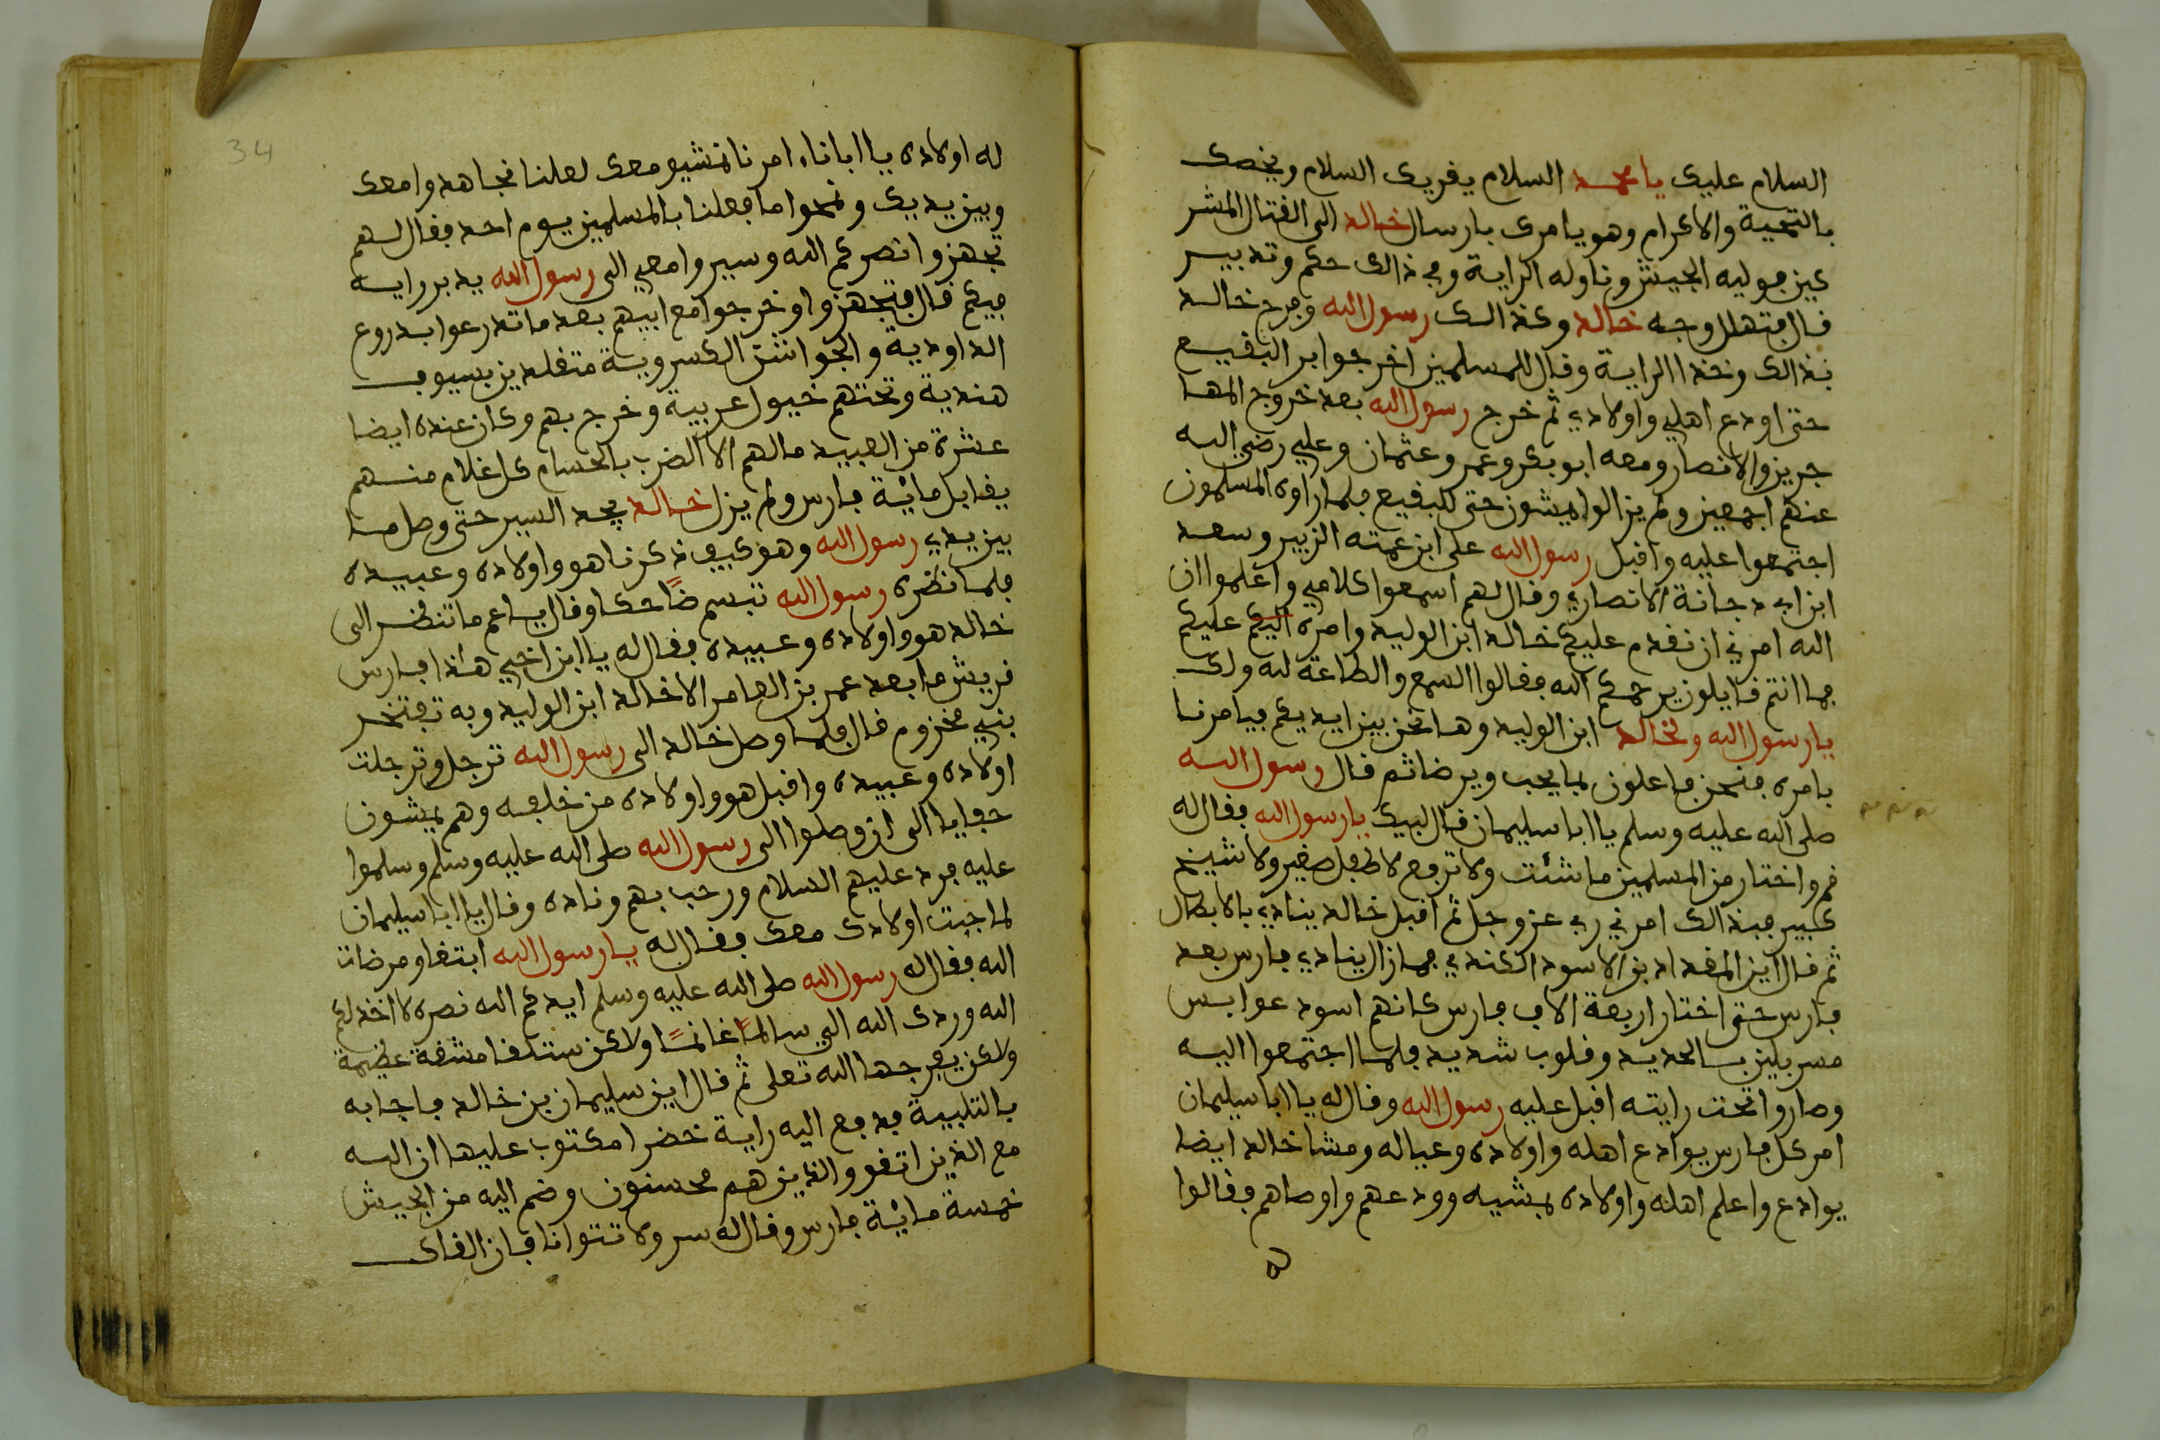 السلام عليك يا محمد السلام يقريك السلام ويخصك
بالتحية والاكرام وهو يامرك بارسال خالد الى القتال المشر
كين موليه الجيش وناوله الراية وفي ذالك حكم وتدبير
قال فتهلل وجه خالد وكذالك رسول الله وفرح خالد
بذالك وخذا الراية وقال للمسلمين اخرجوا بر البقيع
حتى اودع اهلي واولادي ثم خرج رسول الله بعد خروج المها
جرين والانصار ومعه ابو بكر وعمر وعثمان وعلي رضي الله
عنهم اجمعين ولم يزالوا يمشون حتى للبقيع فلما راوه المسلمون
اجتمعوا عليه واقبل رسول الله على ابن عمته الزبير وسعد
ابن ابي دجانة الانصاري وقال لهم اسمعوا كلامي واعلموا ان
الله امرني ان نقدم عليكم خالد ابن الوليد وامره اليكم عليكم
فما انتم قايلون يرحمكم الله فقالوا السمع والطاعة لله ولك
يا رسول الله ولخالد ابن الوليد وها نحن بين ايديكم فيامرنا
بامره فنحن فاعلون لما يحب ويرضا ثم قال رسول الله
صلى الله عليه وسلم يا ابا سليمان قال لبيك يا رسول الله فقال له
قم واختار من المسلمين ما شئت ولا ترفع لا طفل صغير ولا شيخ
كبير فبذالك امرني ربي عز وجل ثم اقبل خالد ينادي بالابطال
ثم قال اين المقداد بن الاسود الكندي فما زال ينادي فارس بعد
فارس حتى اختار اربعة الاف فارس كانهم اسود عوابس
مسربلين بالحديد وقلوب شديد فلما اجتمعوا اليه
وصاروا تحت رايته اقبل عليه رسول الله وقال له يا ابا سليمان
امر كل فارس يوادع اهله واولاده وعياله ومشا خالد ايضا
يوادع واعلم اهله واولاده بمشيه وودعهم واوصاهم فقالوا
له اولاده يا ابانا امرنا نمشيو معك لعلنا نجاهدوا معك
وبين يديك ونمحوا ما فعلنا بالمسلمين يوم احد فقال لهم
تجهزوا نصركم الله وسيروا معي الى رسول الله يدبر رايه
فيكم قال فتجهزوا وخرجوا مع ابيهم بعد ما تدرعوا بدروع
الداودية والجواشن الكسروية متقلدين بسيوف
هندية وتحتهم خيول عربية وخرج بهم وكان عنده ايضا
عشرة من العبيد ما لهم الا الضرب بالحسام كل غلام منهم
يقابل مائة فارس ولم يزل خالد يجد السير حتى وصل ما
بين يدي رسول الله وهو كيف ذكرنا هو واولاده وعبيده
فلما نظره رسول الله تبسم ضاحكا وقال يا عم ما تنظر الى
خالد هو واولاده وعبيده فقال له يا ابن اخي هذا فارس
قريش ما بعد عمر بن العامر الا خالد ابن الوليد وبه تفتخر
بني مخزوم قال فلما وصل خالد الى رسول الله ترجل وترجلت
اولاده وعبيده واقبل هو واولاده من خلفه وهم يمشون
حفايا الى ان وصلوا الى رسول الله صلى الله عليه وسلم وسلموا
عليه فرد عليهم السلام ورحب بهم وناده وقال يا ابا سليمان
لما جبت اولادك معك فقال له يا رسول الله ابتغاو مرضات
الله فقال له رسول الله صلى الله عليه وسلم ايدكم الله نصره لا اخذلكم
الله وردك الله الي سالما غانما ولاكن ستلقا مشقة عظيمة
ولاكن يفرجها الله تعلى ثم قال اين سليمان بن خالد فاجابه
بالتلبية فدفع اليه راية خضرا مكتوب عليها ان الله
مع الذين اتقو والذين هم محسنون وضم اليه من الجيش
خمسة مائة فارس وقال له سر ولا تتوانا فان القاك
34